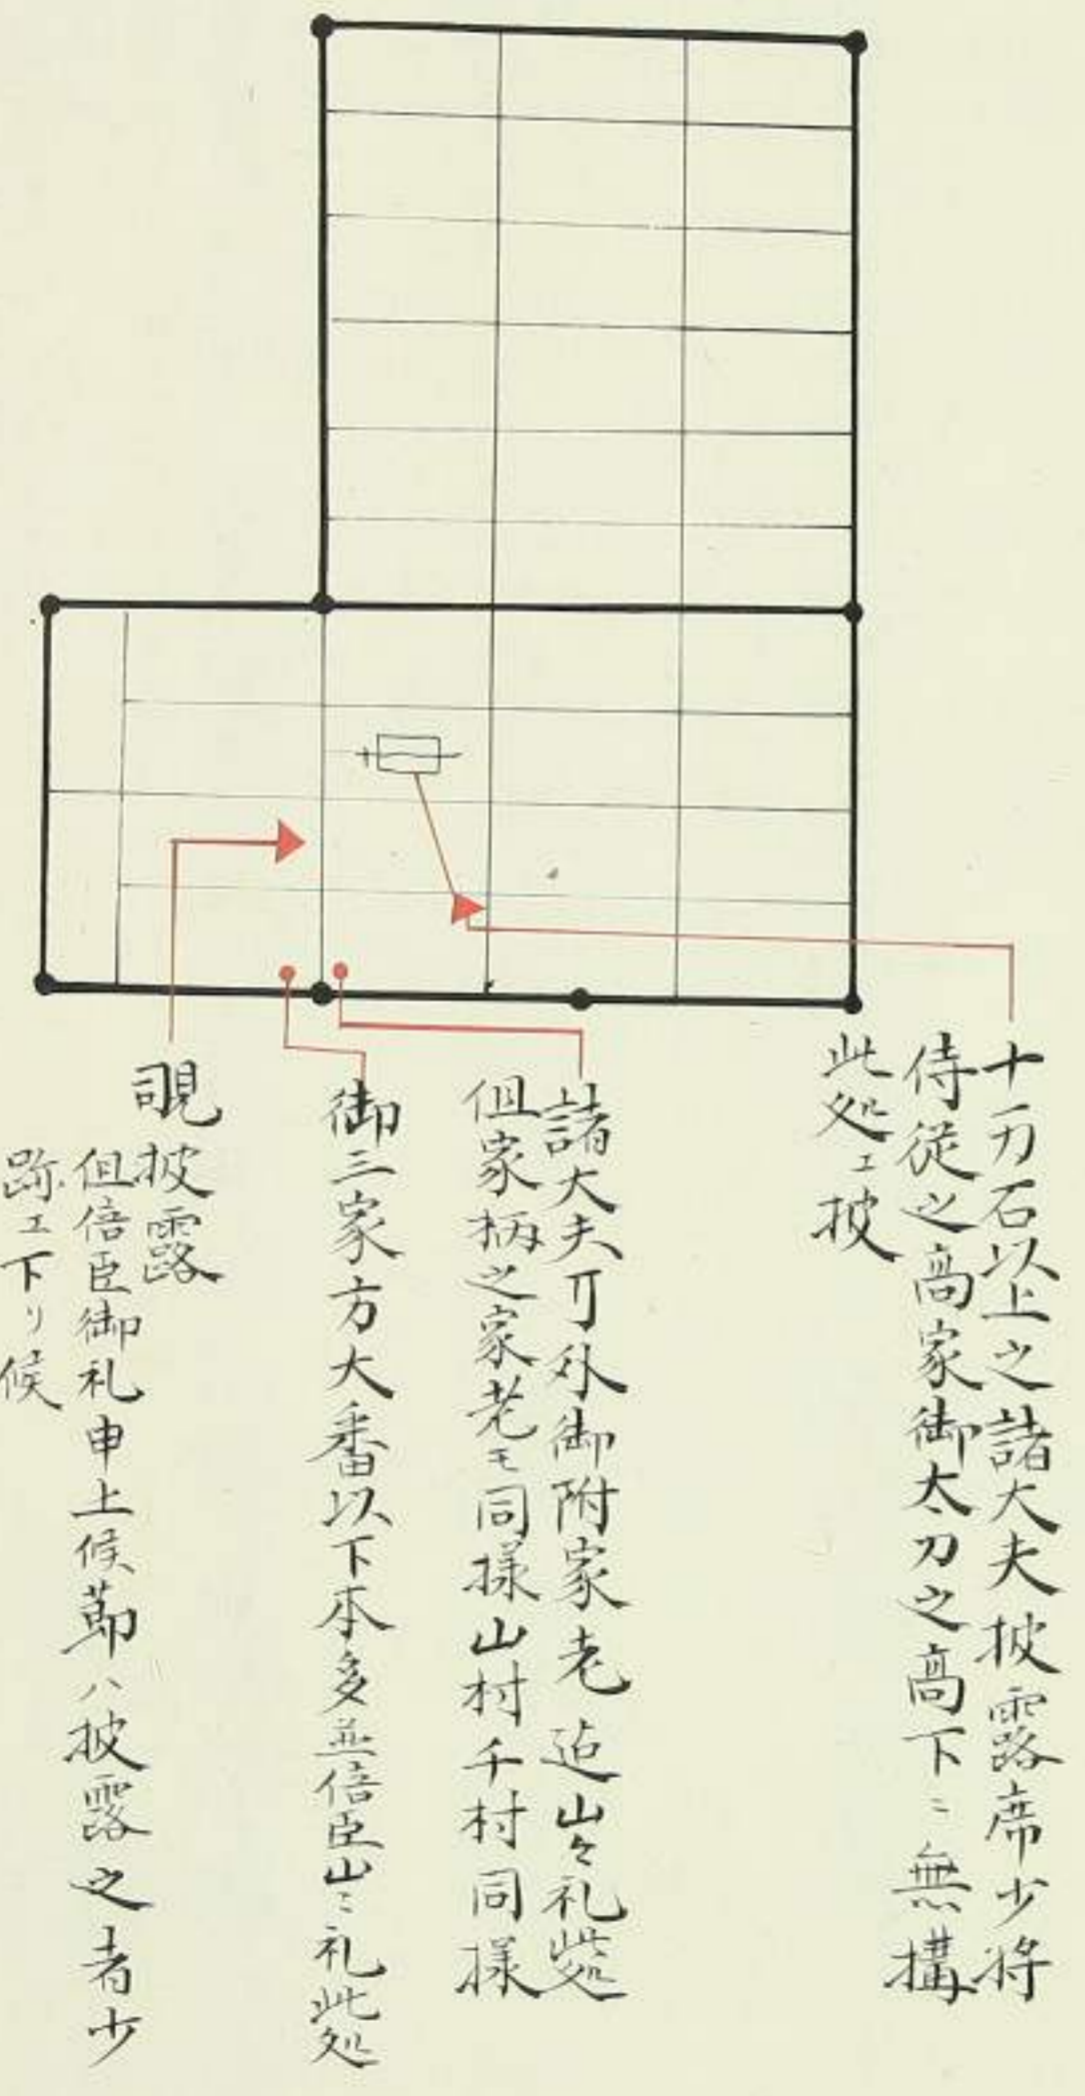 十万石以上之諸大夫披露席少将
侍従之高家御太刀之高下ニ無構
此処エ披
諸大夫 外御附家老 山々礼此処
但家柄之家老モ同様山村千村同様
御三家方大番以下本多並倍臣山々礼此処
披露
但倍臣御礼申上候節ハ披露之者少
跡エ下リ候